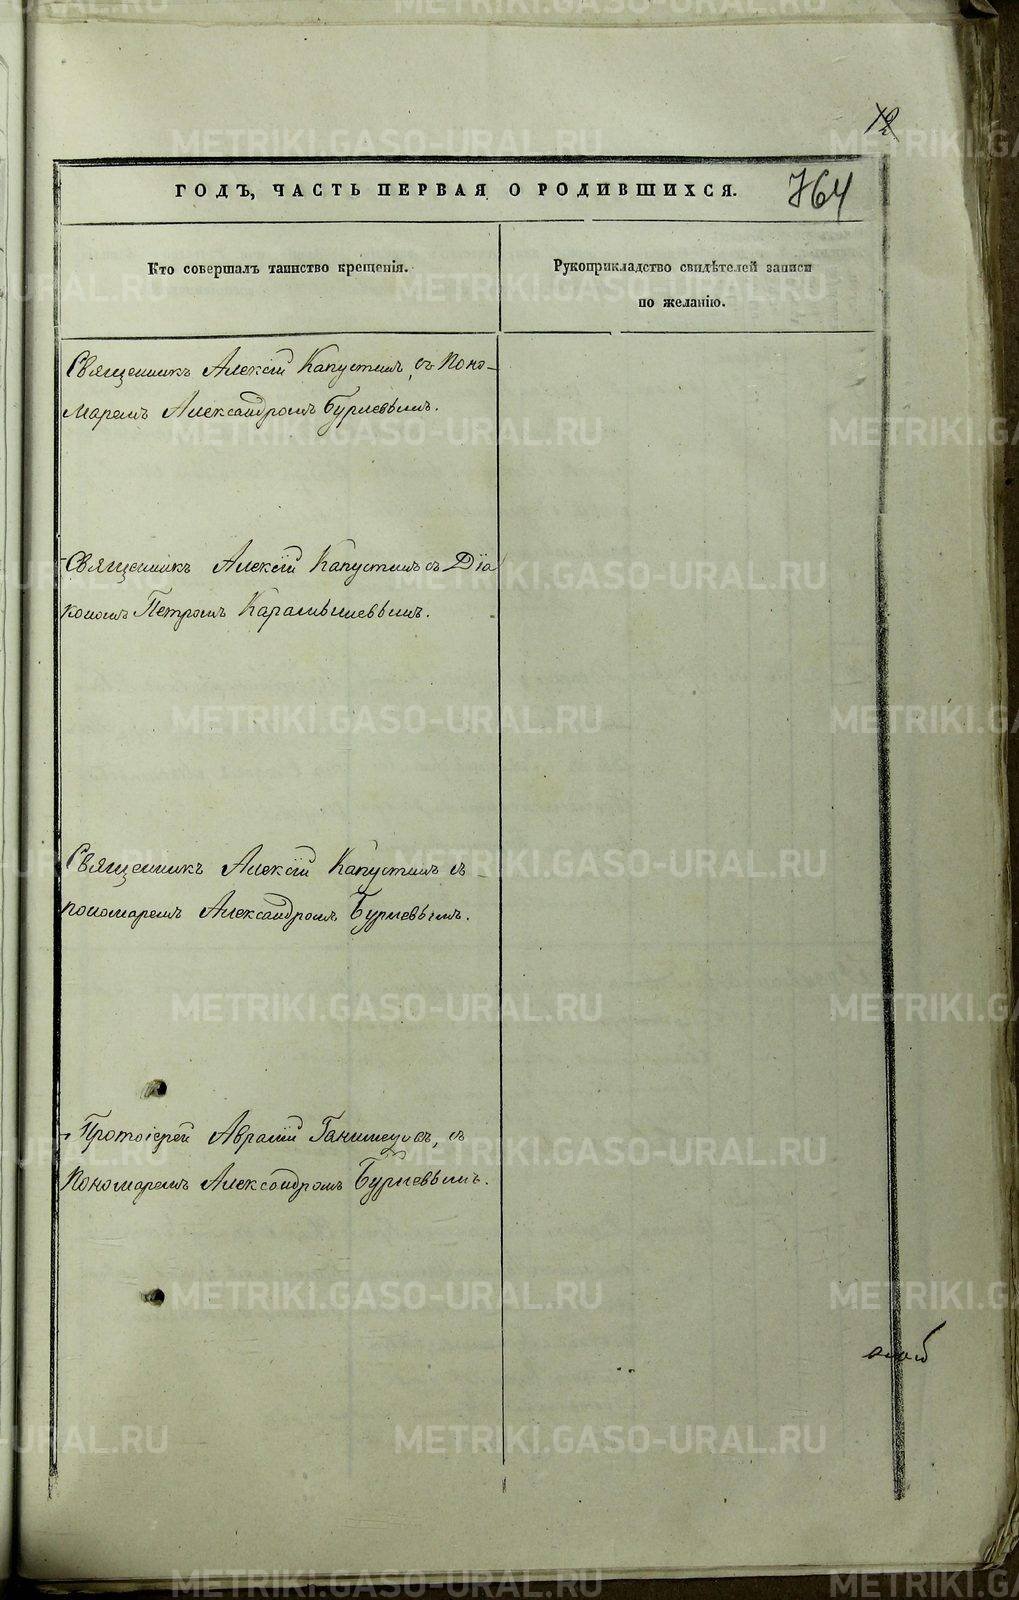 12
ГОДЪ, ЧАСТЬ ПЕРВАЯ О РОДИВШИХСЯ.
764
Кто совершалъ таинство крещенія.
Рукоприкладство свидѣтелей записи
по желанію.
Священникъ Алексій Капустинъ, съ Поно-
маремъ Александромъ Бурневымъ.
Священникъ Алексій Капустинъ съ Діа
кономъ Петромъ Карамышевымъ.
Священникъ Алексій Капустинъ съ
пономаремъ Александромъ Бурневымъ.
Протоіерей Аврамій съ
Пономаремъ Александромъ Бурневымъ.
METRIKI.GASO-URAL.RU